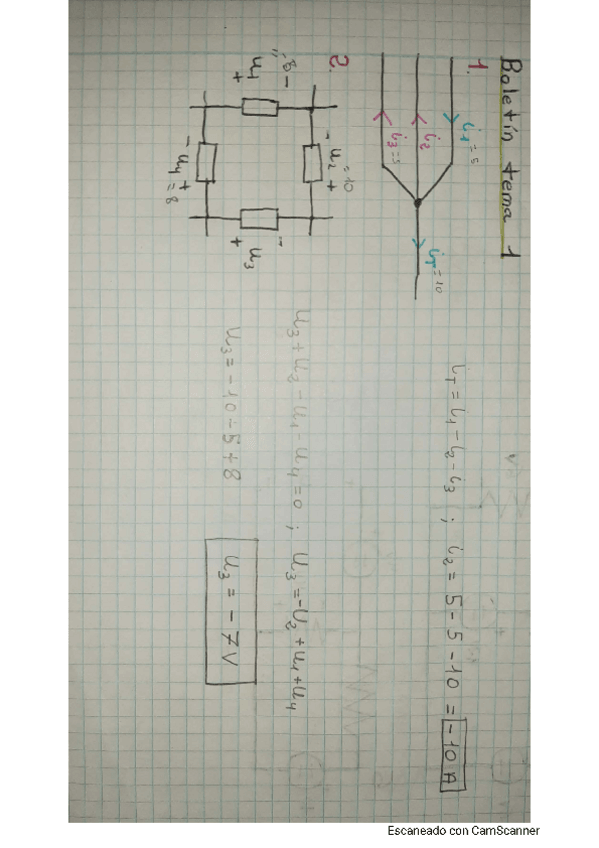 Boletín tema 1
1.
i1 = 5
i2
i3 = 5
iT = 10
iT = i1 - i2 - i3 ; i2 = 5 - 5 - 10 = -10 A
2.
- u2 + = 10
u1
+ -
- u4 + = 8
+ u3 -
u3 + u2 - u1 - u4 = 0 ; u3 = -u2 + u1 + u4
u3 = -10 - 5 + 8
u3 = -7 V
Escaneado con CamScanner